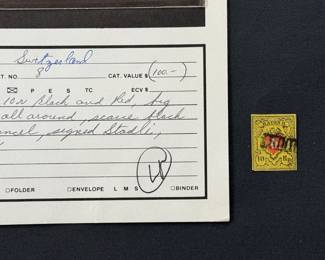 Switzerland
T. NO. 8 CAT. VALUE $ (100.-)
P E S TC ECV $
10r Black and Red, big
all around, scarce black
ncel, signed Stadli,
LP
FOLDER ENVELOPE L M S BINDER
10 Rp.